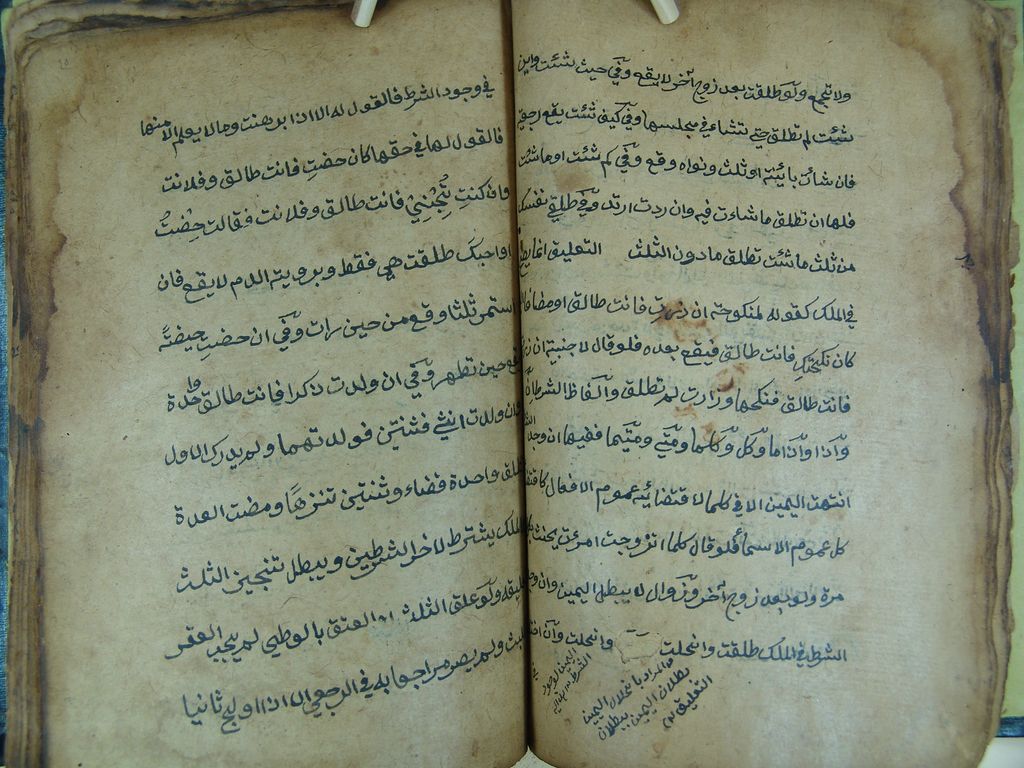 ولا تجمع ولو طلقت بعد زوج آخر لا يقع وفي حيث شئت واين
شئت لم تطلق حتى تشاء في مجلسها وفي كيف شئت يقع رجعية
فان شاءت بائنة او ثلث ونواه وقع وفي كم شئت او ما شئت
فلها ان تطلق ما شاءت فيه وان ردت ارتد وفي طلقي نفسك
من ثلث ما شئت تطلق ما دون الثلث التعليق انما يصح
في الملك كقوله لمنكوحته ان زرت فانت طالق او مضافا
كان نكحتك فانت طالق فيقع بعده فلو قال لاجنبية ان زرت
فانت طالق فنكحها وزارت لم تطلق والفاظ الشرط ان
واذا واذا ما وكل وكلما ومتى ومتيما ففيها ان وجد
انتهت اليمين الا في كلما لاقتضائه عموم الافعال كاقتضاء
كل عموم الاسماء فلو قال كلما تزوجت امرءة يحنث بكل
مرة ولو بعد زوج آخر وزوال لا يبطل اليمين وان وجد
الشرط في الملك طلقت وانحلت وانحلت وان اختلفا
والمراد بانحلال اليمين
بطلان اليمين ببطلان
التعليق
اليمين لوجود
في وجود الشرط فالقول له الا اذا برهنت وما لا يعلم الا منها
فالقول لها في حقها كان حضت فانت طالق وفلانة
وان كنت تحبينني فانت طالق وفلانة فقالت حضت
او احبك طلقت هي فقط وبروية الدم لا يقع فان
استمر ثلثا وقع من حين رات وفي ان حضت حيضة
يقع حين تطهر وفي ان ولدت ذكرا فانت طالق واحدة
وان ولدت انثى فثنتين فولدتهما ولم يدر الاول
تطلق واحدة قضاء وثنتين تنزها ومضت العدة
والملك يشترط لاخر الشرطين ويبطل تنجيز الثلث
تعليقه ولو علق الثلث او العتق بالوطي لم يجب العقر
باللبث ولم يصر مراجعا به في الرجعي الا اذا اولج ثانيا